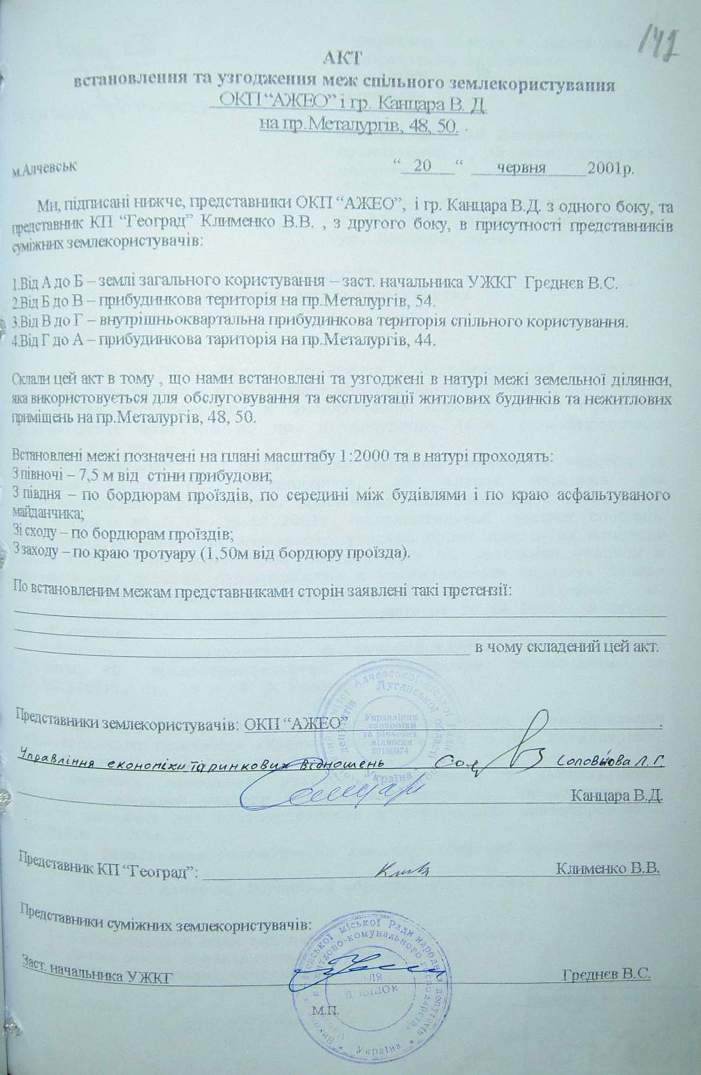 142
АКТ
встановлення та узгодження меж спільного землекористування
ОКП “АЖЕО” і гр. Канцара В. Д
на пр.Металургів, 48, 50. .
м.Алчевськ “ 20 “ червня 2001р.
Ми, підписані нижче, представники ОКП “АЖЕО”, і гр. Канцара В.Д. з одного боку, та
представник КП “Геоград” Клименко В.В. , з другого боку, в присутності представників
суміжних землекористувачів:
1.Від А до Б – землі загального користування – заст. начальника УЖКГ Грєднєв В.С.
2.Від Б до В – прибудинкова територія на пр.Металургів, 54.
3.Від В до Г – внутрішньоквартальна прибудинкова територія спільного користування.
4.Від Г до А – прибудинкова тариторія на пр.Металургів, 44.
Склали цей акт в тому , що нами встановлені та узгоджені в натурі межі земельної ділянки,
яка використовується для обслуговування та експлуатації житлових будинків та нежитлових
приміщень на пр.Металургів, 48, 50.
Встановлені межі позначені на плані масштабу 1:2000 та в натурі проходять:
З півночі – 7,5 м від стіни прибудови;
З півдня – по бордюрам проїздів, по середині між будівлями і по краю асфальтуваного
майданчика;
Зі сходу – по бордюрам проїздів;
З заходу – по краю тротуару (1,50м від бордюру проїзда).
По встановленим межам представниками сторін заявлені такі претензії:
в чому складений цей акт.
Представники землекористувачів: ОКП “АЖЕО” .
Управління економіки та ринкових відношень Сол Соловьйова Л.Г.
Канцара В.Д.
Представник КП “Геоград”: Клименко В.В.
Представники суміжних землекористувачів:
Заст. начальника УЖКГ Грєднєв В.С.
М.П.
Управління
економіки
та ринкових
відносин
Україна
Україна